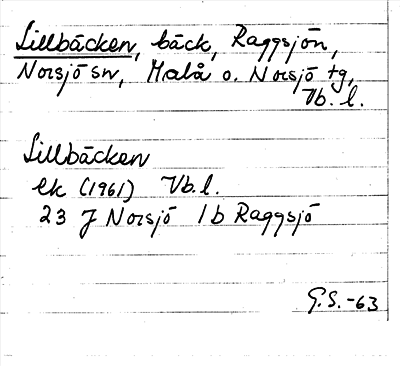 Lillbäcken, bäck, Raggsjön,
Norsjö sn, Malå o. Norsjö tg,
Vb. l.
Lillbäcken
ek (1961) Vb. l.
23 J Norsjö 1b Raggsjö
G.S. -63